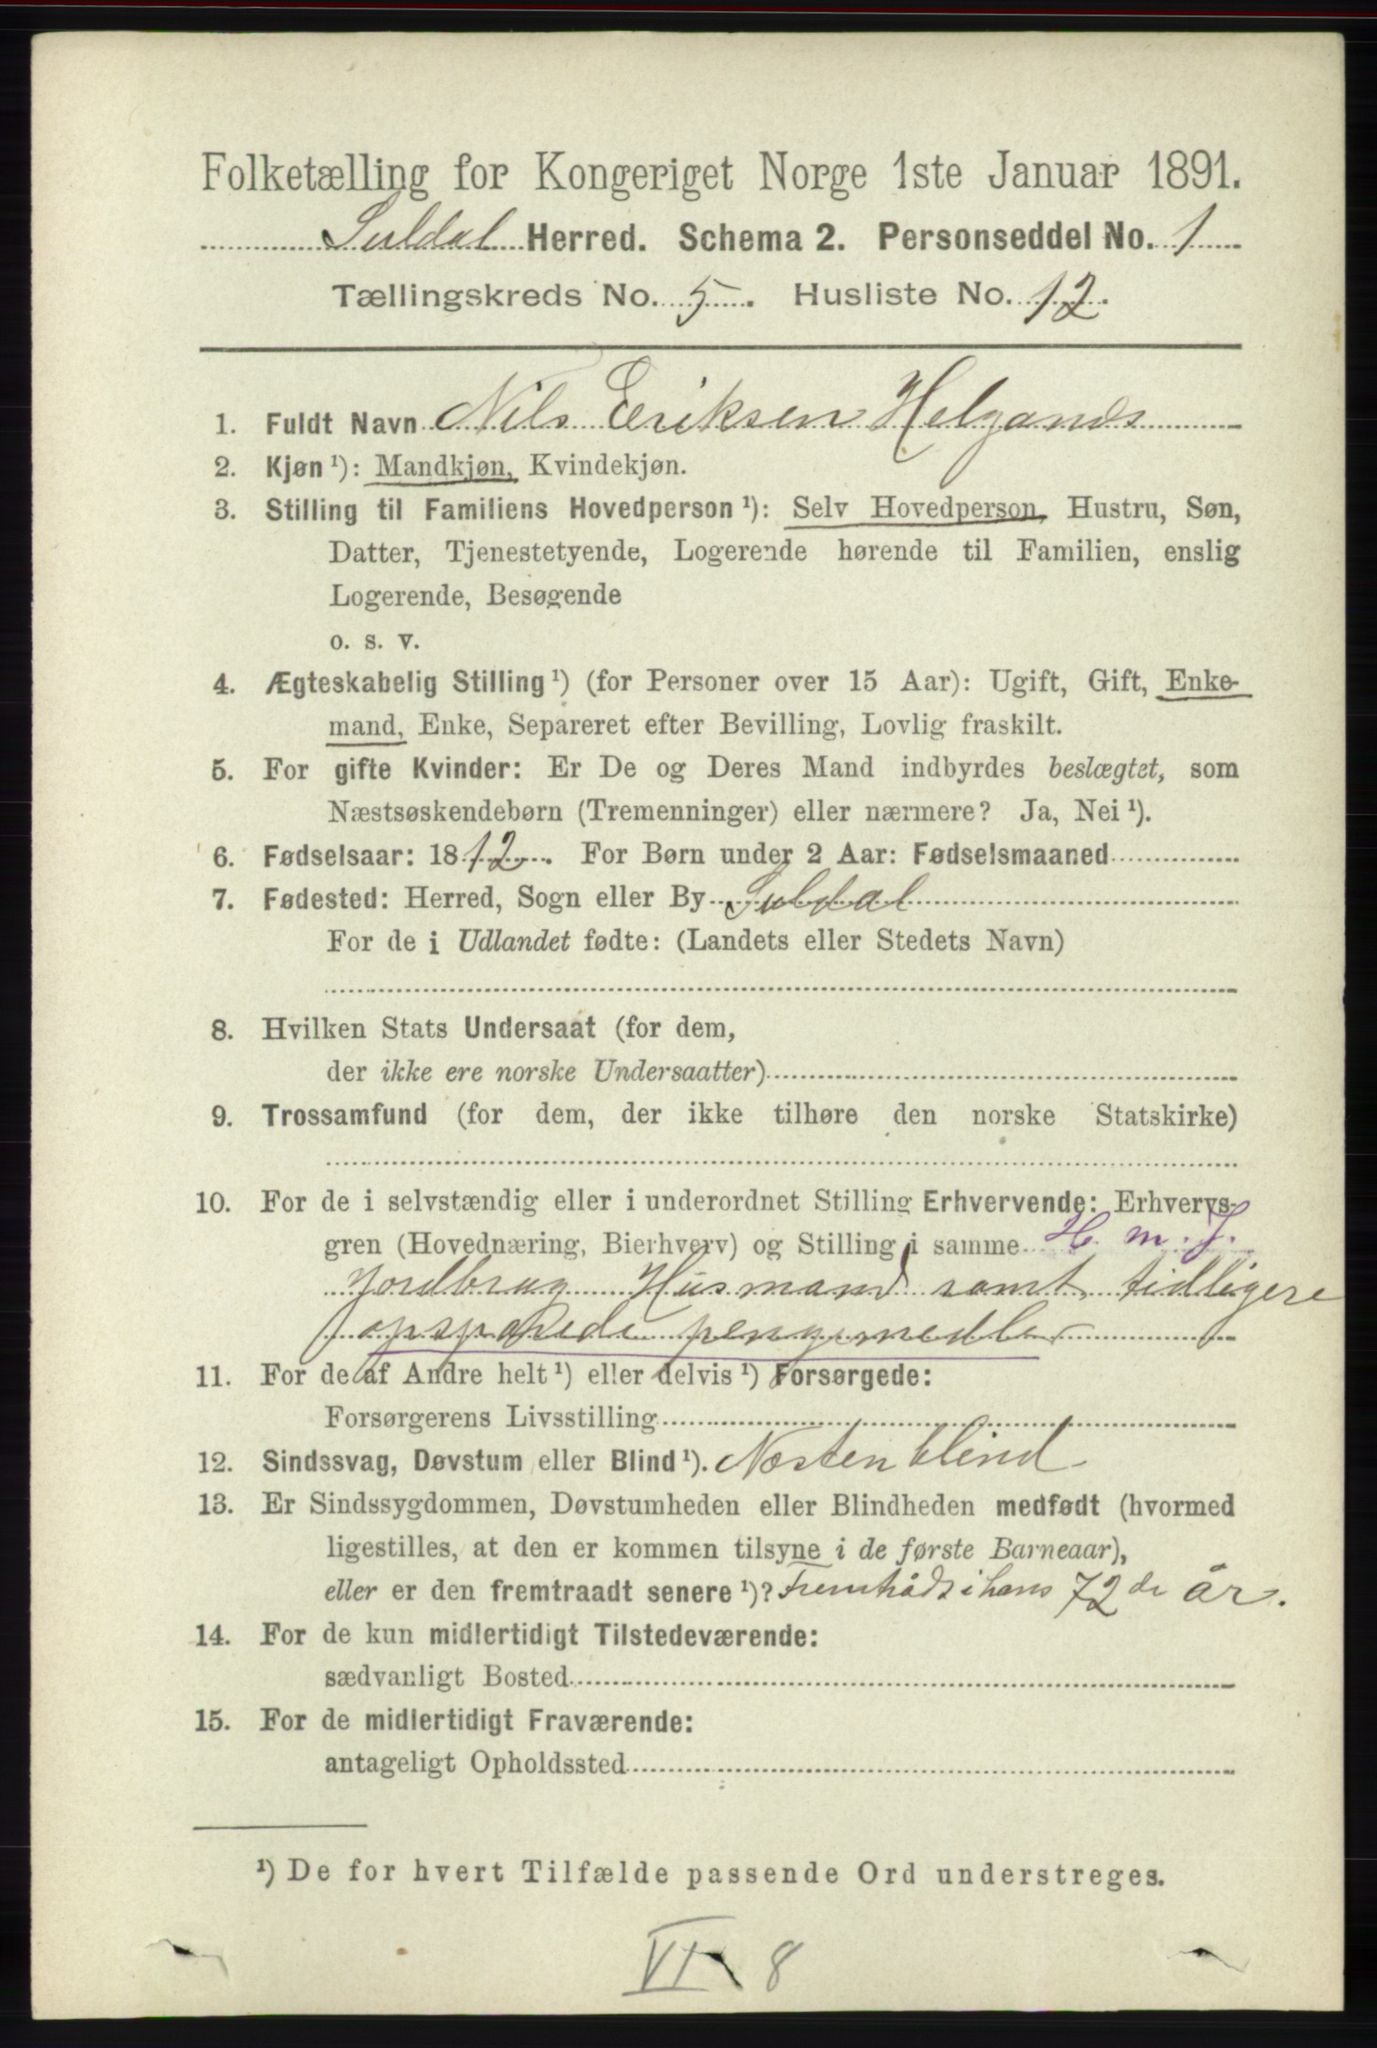 Folketælling for Kongeriget Norge 1ste Januar 1891.
Suldal Herred. Schema 2. Personseddel No. 1
Tællingskreds No. 5. Husliste No. 12.
1. Fuldt Navn Nils Eriksen Helgands
2. Kjøn ¹): Mandkjøn, Kvindekjøn.
3. Stilling til Familiens Hovedperson ¹): Selv Hovedperson, Hustru, Søn,
Datter, Tjenestetyende, Logerende hørende til Familien, enslig
Logerende, Besøgende
o. s. v.
4. Ægteskabelig Stilling ¹) (for Personer over 15 Aar): Ugift, Gift, Enke-
mand, Enke, Separeret efter Bevilling, Lovlig fraskilt.
5. For gifte Kvinder: Er De og Deres Mand indbyrdes beslægtet, som
Næstsøskendebørn (Tremenninger) eller nærmere? Ja, Nei ¹).
6. Fødselsaar: 1812. For Børn under 2 Aar: Fødselsmaaned
7. Fødested: Herred, Sogn eller By Suldal
For de i Udlandet fødte: (Landets eller Stedets Navn)
8. Hvilken Stats Undersaat (for dem,
der ikke ere norske Undersaatter)
9. Trossamfund (for dem, der ikke tilhøre den norske Statskirke)
10. For de i selvstændig eller i underordnet Stilling Erhvervende: Erhvervs-
gren (Hovednæring, Bierhverv) og Stilling i samme H. m. J.
Jordbrug Husmand samt tidligere
opsparede pengemedler
11. For de af Andre helt ¹) eller delvis ¹) Forsørgede:
Forsørgerens Livsstilling
12. Sindssvag, Døvstum eller Blind ¹). Næsten blind
13. Er Sindssygdommen, Døvstumheden eller Blindheden medfødt (hvormed
ligestilles, at den er kommen tilsyne i de første Barneaar),
eller er den fremtraadt senere ¹)? Fremtrådt i hans 72de år.
14. For de kun midlertidigt Tilstedeværende:
sædvanligt Bosted
15. For de midlertidigt Fraværende:
antageligt Opholdssted
¹) De for hvert Tilfælde passende Ord understreges.
VI 8